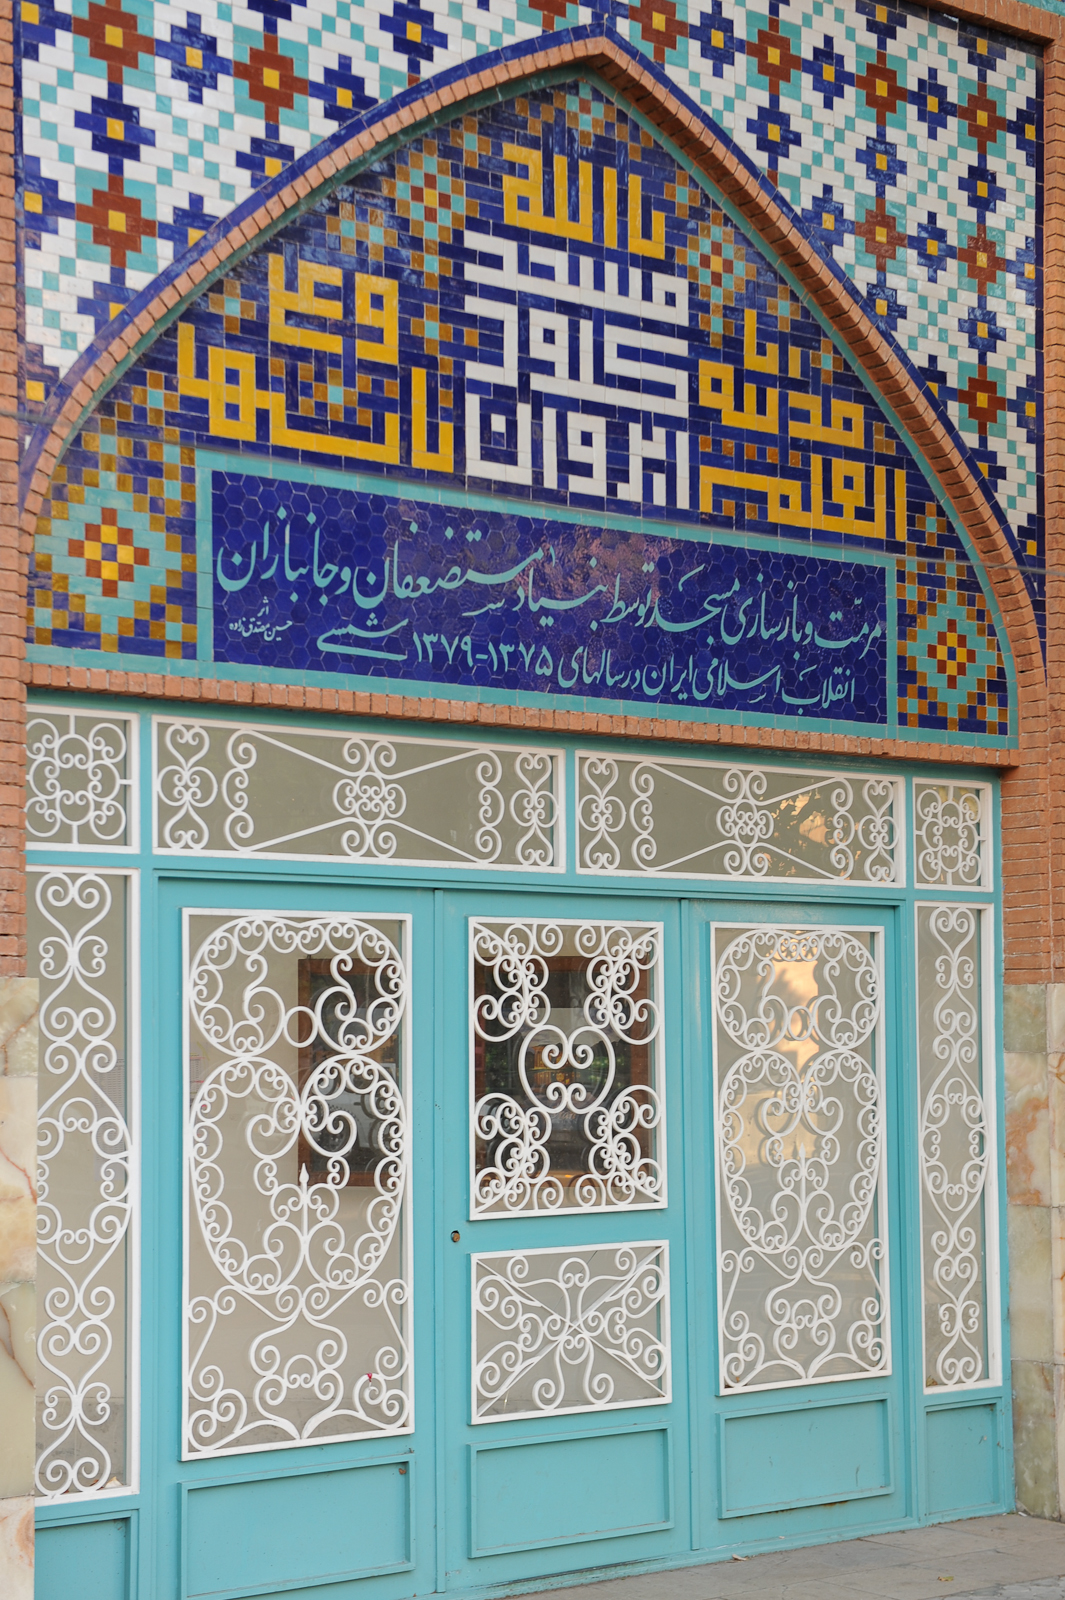 یا الله
مسجد
انا مدینة العلم
وعلی بابها
مرمّت و بازسازی مسجد توسط بنیاد مستضعفان و جانبازان
انقلاب اسلامی ایران در سالهای ۱۳۷۵-۱۳۷۹ شمسی
اثر
حسین مصدق زاده